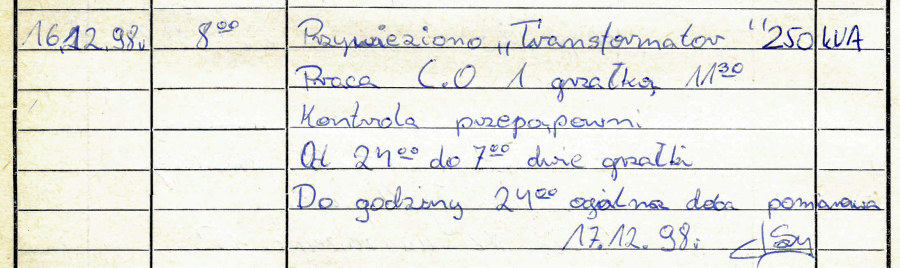 16.12.98. 8⁰⁰ Przywieziono „Transformator" 250 kVA
Praca C.O 1 grzałką 11³⁰
Kontrola przepompowni
Od 24⁰⁰ do 7⁰⁰ dwie grzałki
Do godziny 24⁰⁰ ogólna doba pomiarowa
17.12.98.